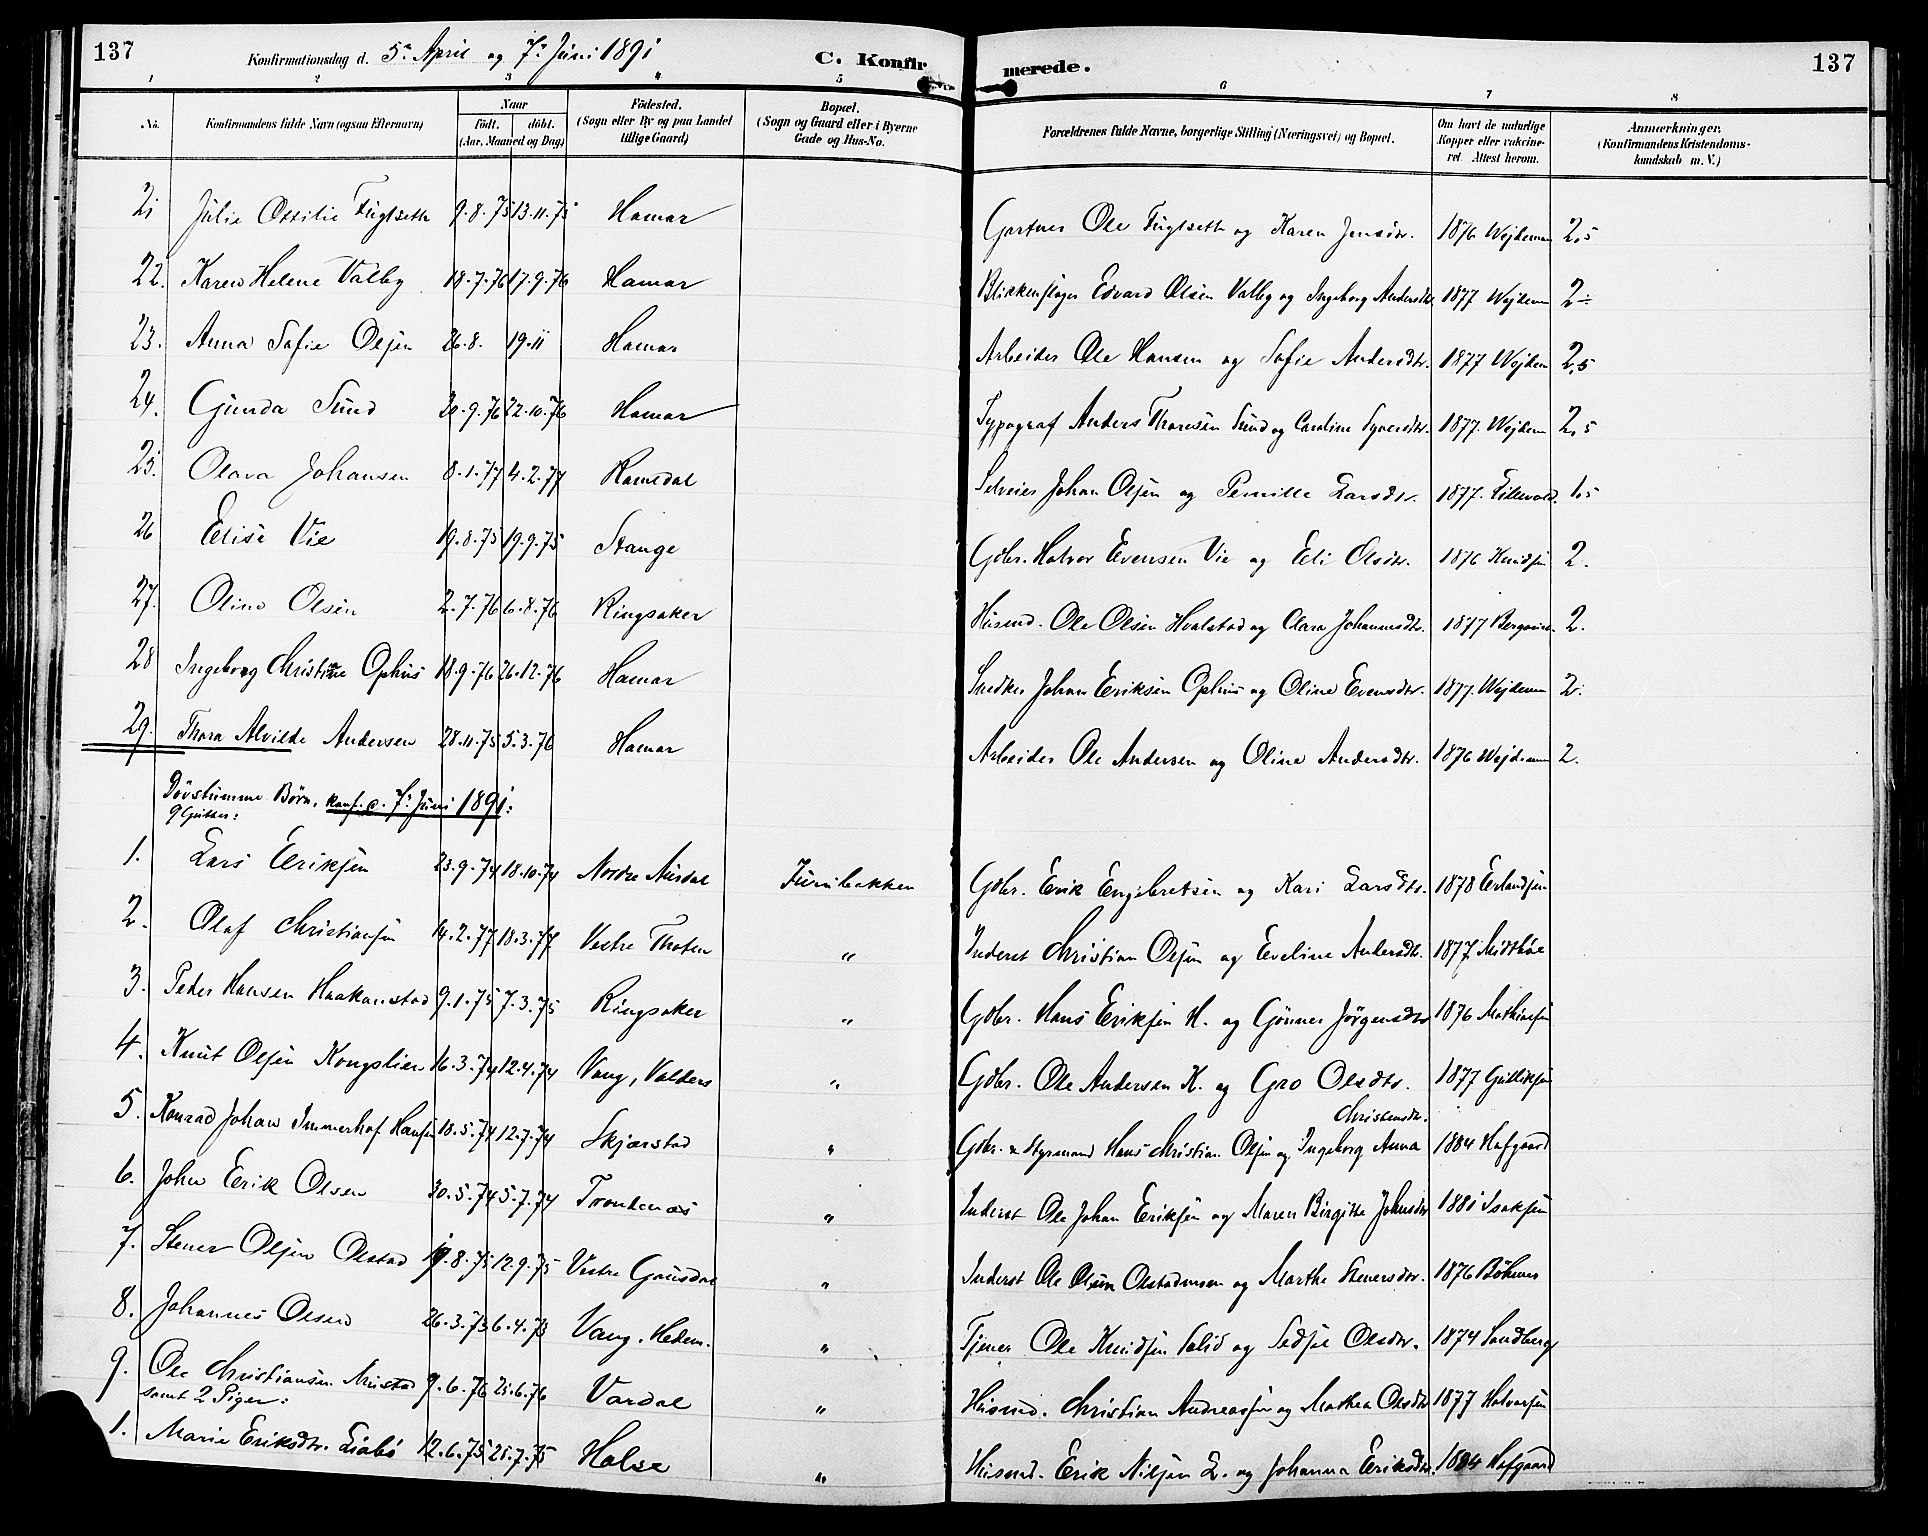 137 Konfirmationsdag d. 5te April og 7de Juni 1891 C. Konfirmerede. 137
1 2 3 4 5 6 7 8
No. Konfirmandens fulde Navn (ogsaa Efternavn) Naar födt. döbt. (Aar, Maaned og Dag) Födested. (Sogn eller By og paa Landet tillige Gaard) Bopæl. (Sogn og Gaard eller i Byerne Gade og Hus-No. Forældrenes fulde Navne, borgerlige Stilling (Næringsvei) og Bopæl. Om havt de naturlige Kopper eller vakcineret Attest herom. Anmærkninger. (Konfirmandens Kristendomskundskab m. V.)
21 Julie Ottilie Fuglseth 9.8.75 13.11.75 Hamar Gartner Ole Fuglseth og Karen Jensdtr. 1876 Wejdeman 2,5
22. Karen Helene Valby 18.7.76 17.9.76 Hamar Blikkenslager Edvard Olsen Valby og Ingeborg Andersdtr. 1877 Wejdem 2÷
23. Anna Sofie Olsen 26.8. 19.11 Hamar Arbeider Ole Hansen og Sofie Andersdtr. 1877 Wejdem 2,5
24. Gunda Sund 20.9.76 22.10.76 Hamar Typograf Anders Thoresen Sund og Caroline Syversdtr. 1877. Wejdem 2,5
25. Olava Johansen 8.1.77 4.2.77 Romedal Selveier Johan Olsen og Pernille Larsdtr. 1877. 1,5
26 Elise Vie 19.8.75 19.9.75 Stange Gdbr. Halvor Evensen Vie og Eli Olsdtr. 1876 Knudsen 2.
27. Oline Olsen 2.7.76 6.8.76 Ringsaker Husmd. Ole Olsen Hvalstad og Clara Johannesdtr. 1877 2.
28 Ingeborg Christine Ophus 18.9.76 26.12.76 Hamar Snedker Johan Eriksen Ophus og Oline Evensdtr. 1877. Wejdeman 2.
29. Thora Alvilde Andersen 28.11.75 5.3.76 Hamar Arbeider Ole Andersen og Oline Andersdtr. 1876 Wejdeman 2.
Døvstumme Børn, konf. d. 7de Juni 1891:
9 Gutter:
1. Lars Eriksen 23.9.74 18.10.74 Nordre Aurdal Furubakken Gdbr. Erik Engebretsen og Kari Larsdtr. 1878 Erlandsen
2. Olaf Christiansen 14.2.77 18.3.77 Vestre Thoten " Inderst Christian Olsen og Eveline Andersdtr. 1877.
3. Peder Hansen Haakonstad 9.1.75 7.3.75 Ringsaker " Gdbr. Hans Eriksen H. og Gunner Jørgensdtr 1876 Mathiesen
4. Knut Olsen Kongslien 16.3.74 12.4.74 Vang, Valders " Gdbr. Ole Andersen K. og Gro Olsdtr. 1877 Gulliksen
5. Konrad Johan Immerhof Hansen 18.5.74 12.7.74 Skjærstad " Gdbr. & Styrmand Hans Christian Olsen og Ingeborg Anna Christensdtr. 1884 Hafgaard
6. Johan Erik Olsen 30.5.74 5.7.74 Trondenæs " Inderst Ole Johan Eriksen og Maren Birgitte Johnsdtr 1881 Isaksen
7. Stener Olsen Olstad 19.8.75 12.9.75 Vestre Gausdal " Inderst Ole Olsen Olstadmoen og Marthe Stenersdtr. 1876 Bøhmer
8. Johannes Olsen 26.3.73 6.4.73 Vang. Hedem. " Tjener Ole Knudsen og Olsdtr. 1874 Sandberg
9. Ole Christiansen Mustad 9.6.76 25.6.76 Vardal " Husmd. Christian Andreassen og Mathea Olsdtr 1877 Halvorsen
samt 2 Piger:
1. Marie Eriksdtr. Liabø 12.6.75 25.7.75 Halse " Husmd. Erik Nilsen L. og Johanna Eriksdtr. 1884 Hafgaard